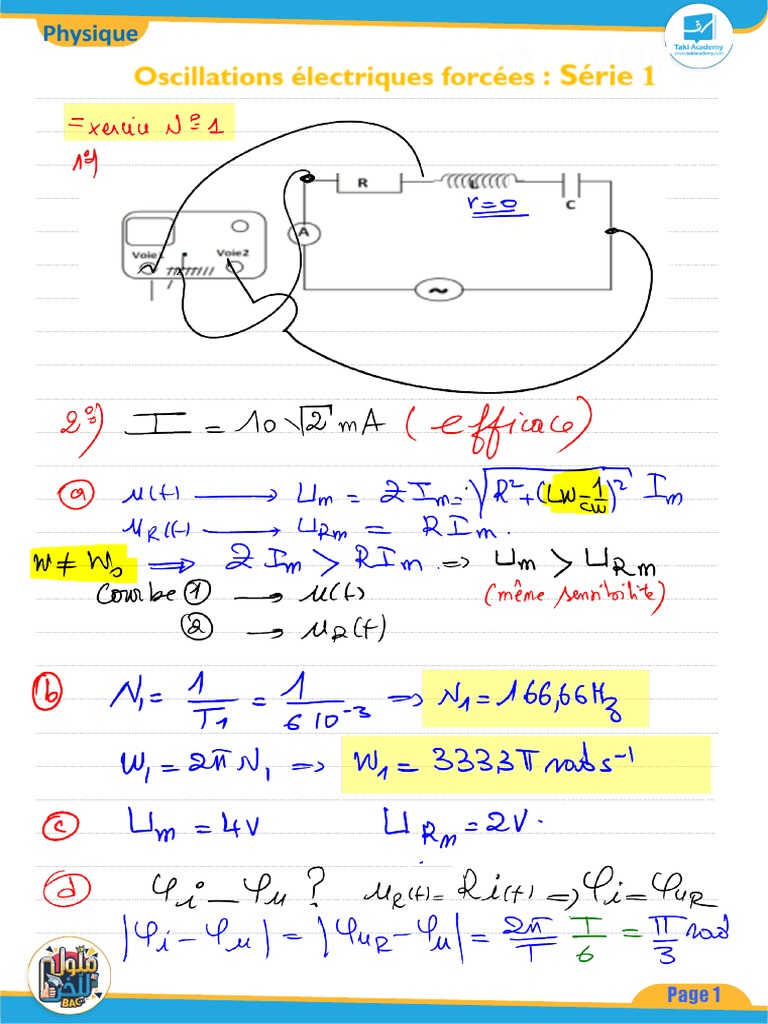 Physique
Takl Academy
www.takiacademy.com
Oscillations électriques forcées : Série 1
Exercice N°=1
1°)
R
L
C
r=0
A
Voie1
Voie2
~
2°) I = 10√2 mA (efficace)
a) u(t) → Um = Z Im = √(R² + (Lw - 1/cw)²) Im
uR(t) → URm = R Im.
w ≠ w0 ⇒ Z Im > R Im ⇒ Um > URm
Courbe ① → u(t) (même sensibilité)
② → uR(t)
b) N1 = 1/T1 = 1/6 10^-3 ⇒ N1 = 166,66Hz
W1 = 2π N1 ⇒ W1 = 333,3π rad s^-1
c) Um = 4V URm = 2V.
d) φi - φu ? uR(t) = Ri(t) ⇒ φi = φuR
|φi - φu| = |φuR - φu| = 2π/T T/6 = π/3 rad
BAC
Page 1